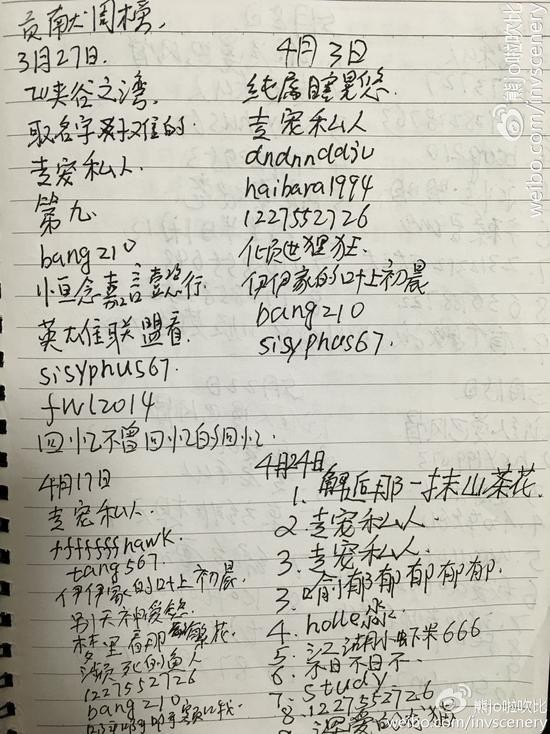 贡献周榜.
3月27日.
W峡谷之湾.
取名字好难的
专宠私人.
第九.
bang210
恒念嘉言懿行
英雄联盟看.
sisyphus567.
fwl2014
回忆不曾回忆的回忆.
4月3日
纯属瞎晃悠.
专宠私人
dndnnddju
haibara1994
1227552726
倾世狸狂.
伊伊家的叶上初晨
bang210
sisyphus67.
4月17日
专宠私人.
fffffffhawk.
tang567.
伊伊家的叶上初晨.
林里看那繁花.
濒死的鱼人
1227552726
bang210
4月24日
1. 邂逅那一抹山茶花.
2 专宠私人.
3. 专宠私人.
3. 喻郁郁郁郁郁.
4. holle淼.
5. 江湖小虾米666
6.
7. study
8. 1227552726
深爱的
熊jo啦吹比
weibo.com/invscenery
熊jo啦吹比
weibo.com/invscenery